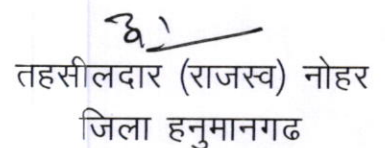 तहसीलदार (राजस्व) नोहर
जिला हनुमानगढ